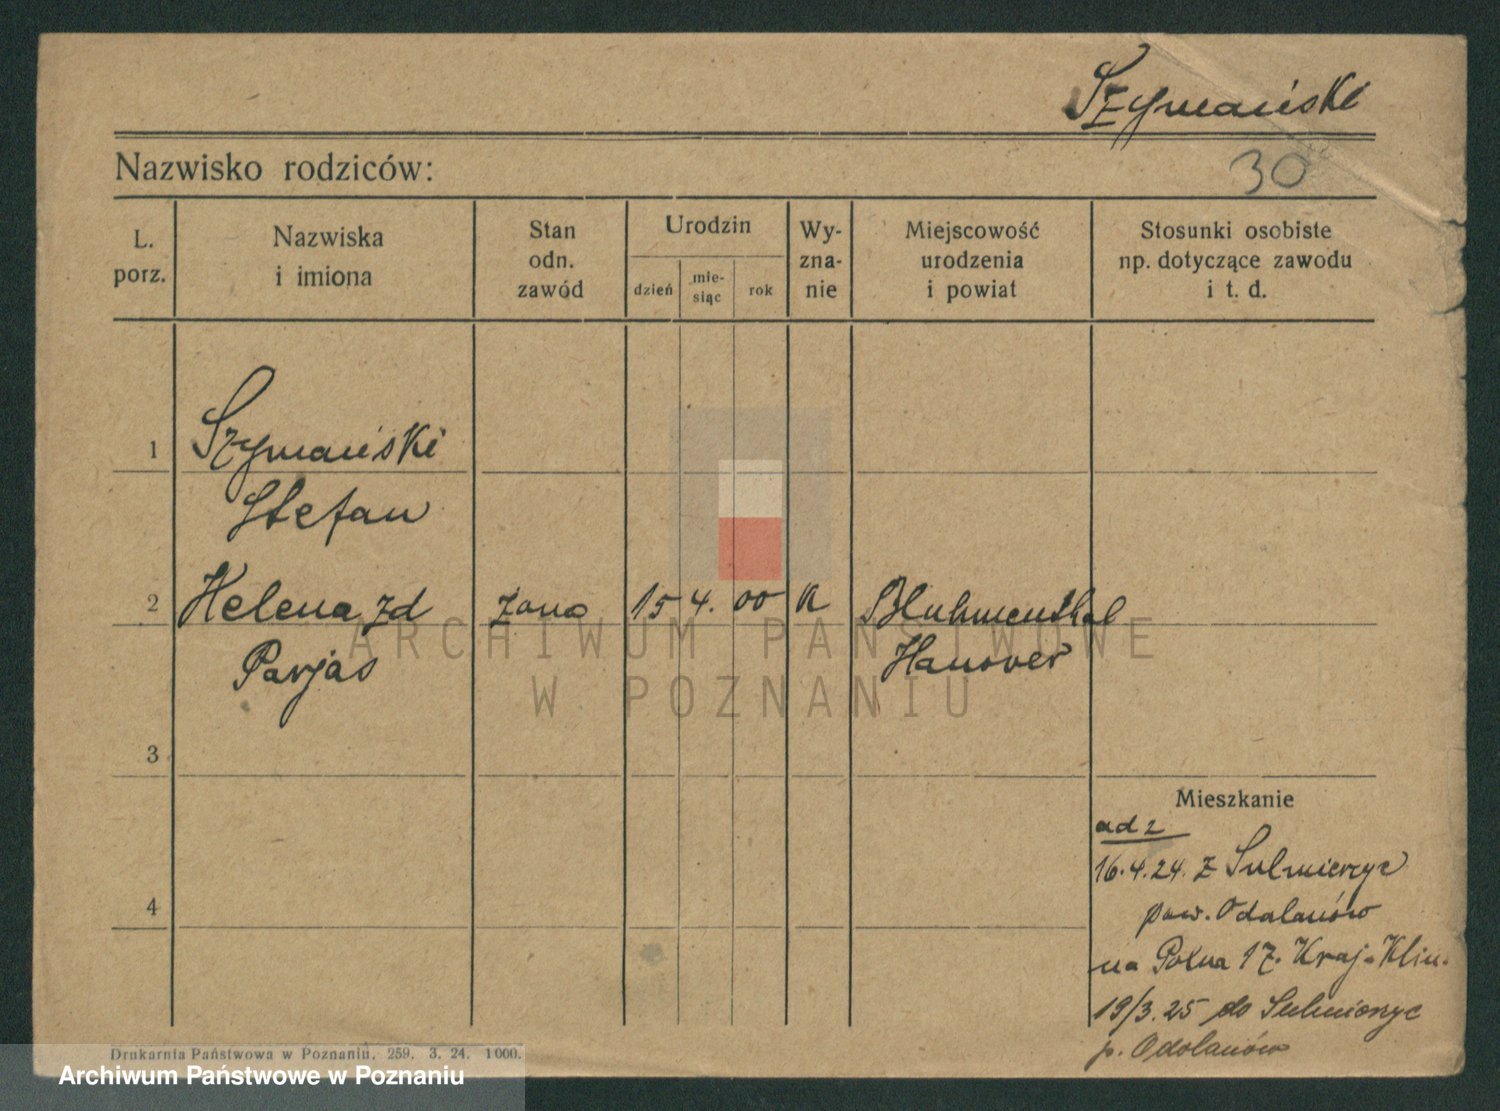 Szymański
Nazwisko rodziców:
30
L. porz.
Nazwiska i imiona
Stan odn. zawód
Urodzin
dzień
mie- siąc
rok
Wy- zna- nie
Miejscowość urodzenia i powiat
Stosunki osobiste np. dotyczące zawodu i t. d.
1 Szymański
Stefan
2 Helena zd żona 15 4. 00 K Bluhmenthal
Parjas Hanover
3
4
Mieszkanie
ad 2
16.4.24. z Sulmierzyc
pow. Odalanów
na Polna 17. Kraj-
19/3.25 do Sulmierzyc
p. Odolanów
Drukarnia Państwowa w Poznaniu, 259. 3. 24. 1000.
ARCHIWUM PAŃSTWOWE
W POZNANIU
Archiwum Państwowe w Poznaniu